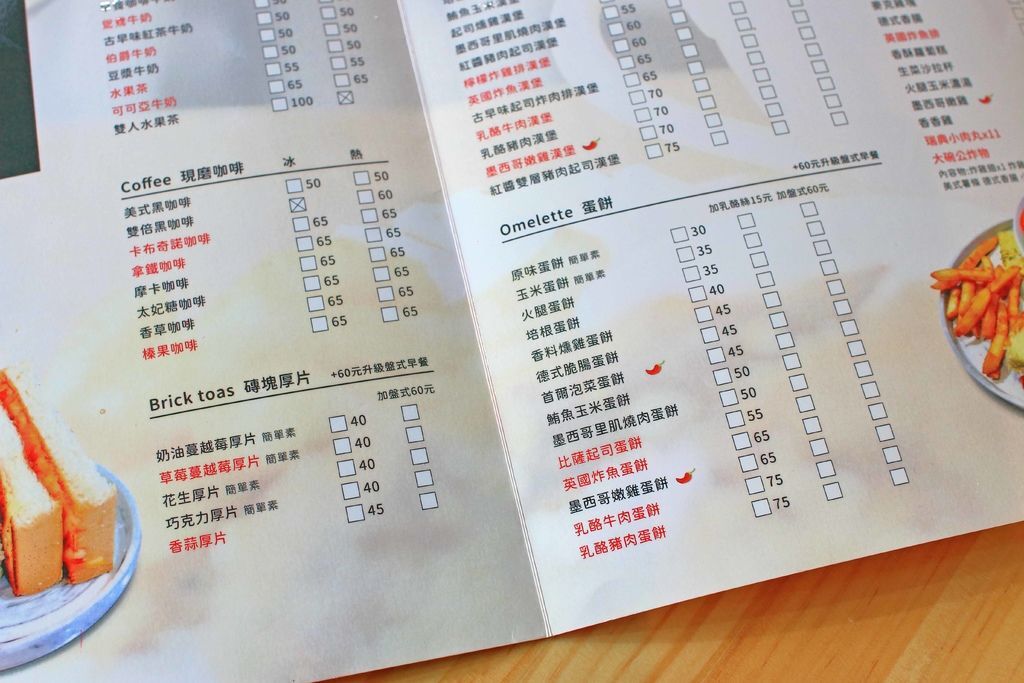 鴛鴦牛奶 50 50
古早味紅茶牛奶 50 50
伯爵牛奶 50 50
豆漿牛奶 55 55
水果茶 65 65
可可亞牛奶 100
雙人水果茶
Coffee 現磨咖啡 冰 熱
美式黑咖啡 50 50
雙倍黑咖啡 60
卡布奇諾咖啡 65 65
拿鐵咖啡 65 65
摩卡咖啡 65 65
太妃糖咖啡 65 65
香草咖啡 65 65
榛果咖啡 65 65
Brick toas 磚塊厚片 +60元升級盤式早餐
加盤式60元
奶油蔓越莓厚片 簡單素 40
草莓蔓越莓厚片 簡單素 40
花生厚片 簡單素 40
巧克力厚片 簡單素 40
香蒜厚片 45
鮪魚玉米漢堡
起司燻雞漢堡
墨西哥里肌燒肉漢堡
紅醬豬肉起司漢堡
檸檬炸雞排漢堡
英國炸魚漢堡
古早味起司炸肉排漢堡
乳酪牛肉漢堡
乳酪豬肉漢堡
墨西哥嫩雞漢堡
紅醬雙層豬肉起司漢堡
55
60
60
65
70
70
70
75
+60元升級盤式早餐
Omelette 蛋餅 加乳酪絲15元 加盤式60元
原味蛋餅 簡單素 30
玉米蛋餅 簡單素 35
火腿蛋餅 35
培根蛋餅 40
香料燻雞蛋餅 45
德式脆腸蛋餅 45
首爾泡菜蛋餅 45
鮪魚玉米蛋餅 50
墨西哥里肌燒肉蛋餅 50
比薩起司蛋餅 55
英國炸魚蛋餅 65
墨西哥嫩雞蛋餅 65
乳酪牛肉蛋餅 75
乳酪豬肉蛋餅 75
德式香腸
英國炸魚排
香酥蘿蔔糕
生菜沙拉杯
火腿玉米濃湯
墨西哥嫩雞
香香雞
瑞典小肉丸x11
大碗公炸物